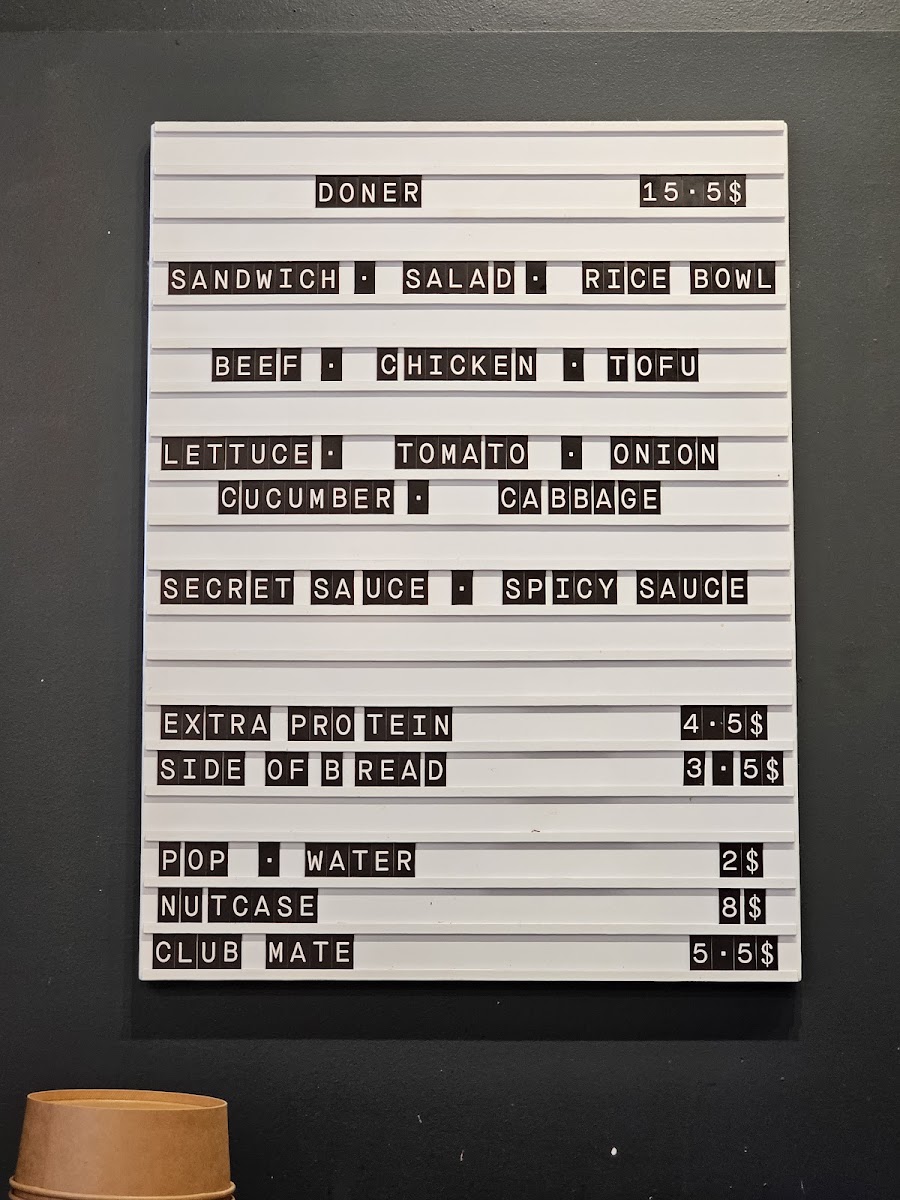 DONER 15·5$
SANDWICH · SALAD · RICE BOWL
BEEF · CHICKEN · TOFU
LETTUCE · TOMATO · ONION
CUCUMBER · CABBAGE
SECRET SAUCE · SPICY SAUCE
EXTRA PROTEIN 4·5$
SIDE OF BREAD 3·5$
POP · WATER 2$
NUTCASE 8$
CLUB MATE 5·5$